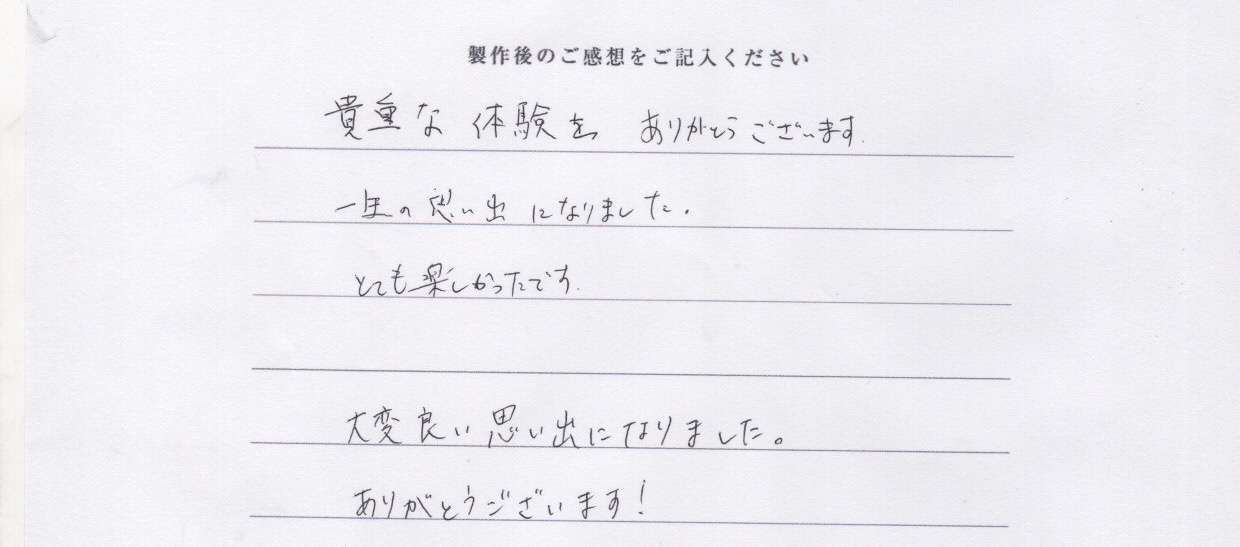 製作後のご感想をご記入ください
貴重な体験を ありがとうございます.
一生の思い出になりました.
とても楽しかったです.
大変良い思い出になりました。
ありがとうございます!